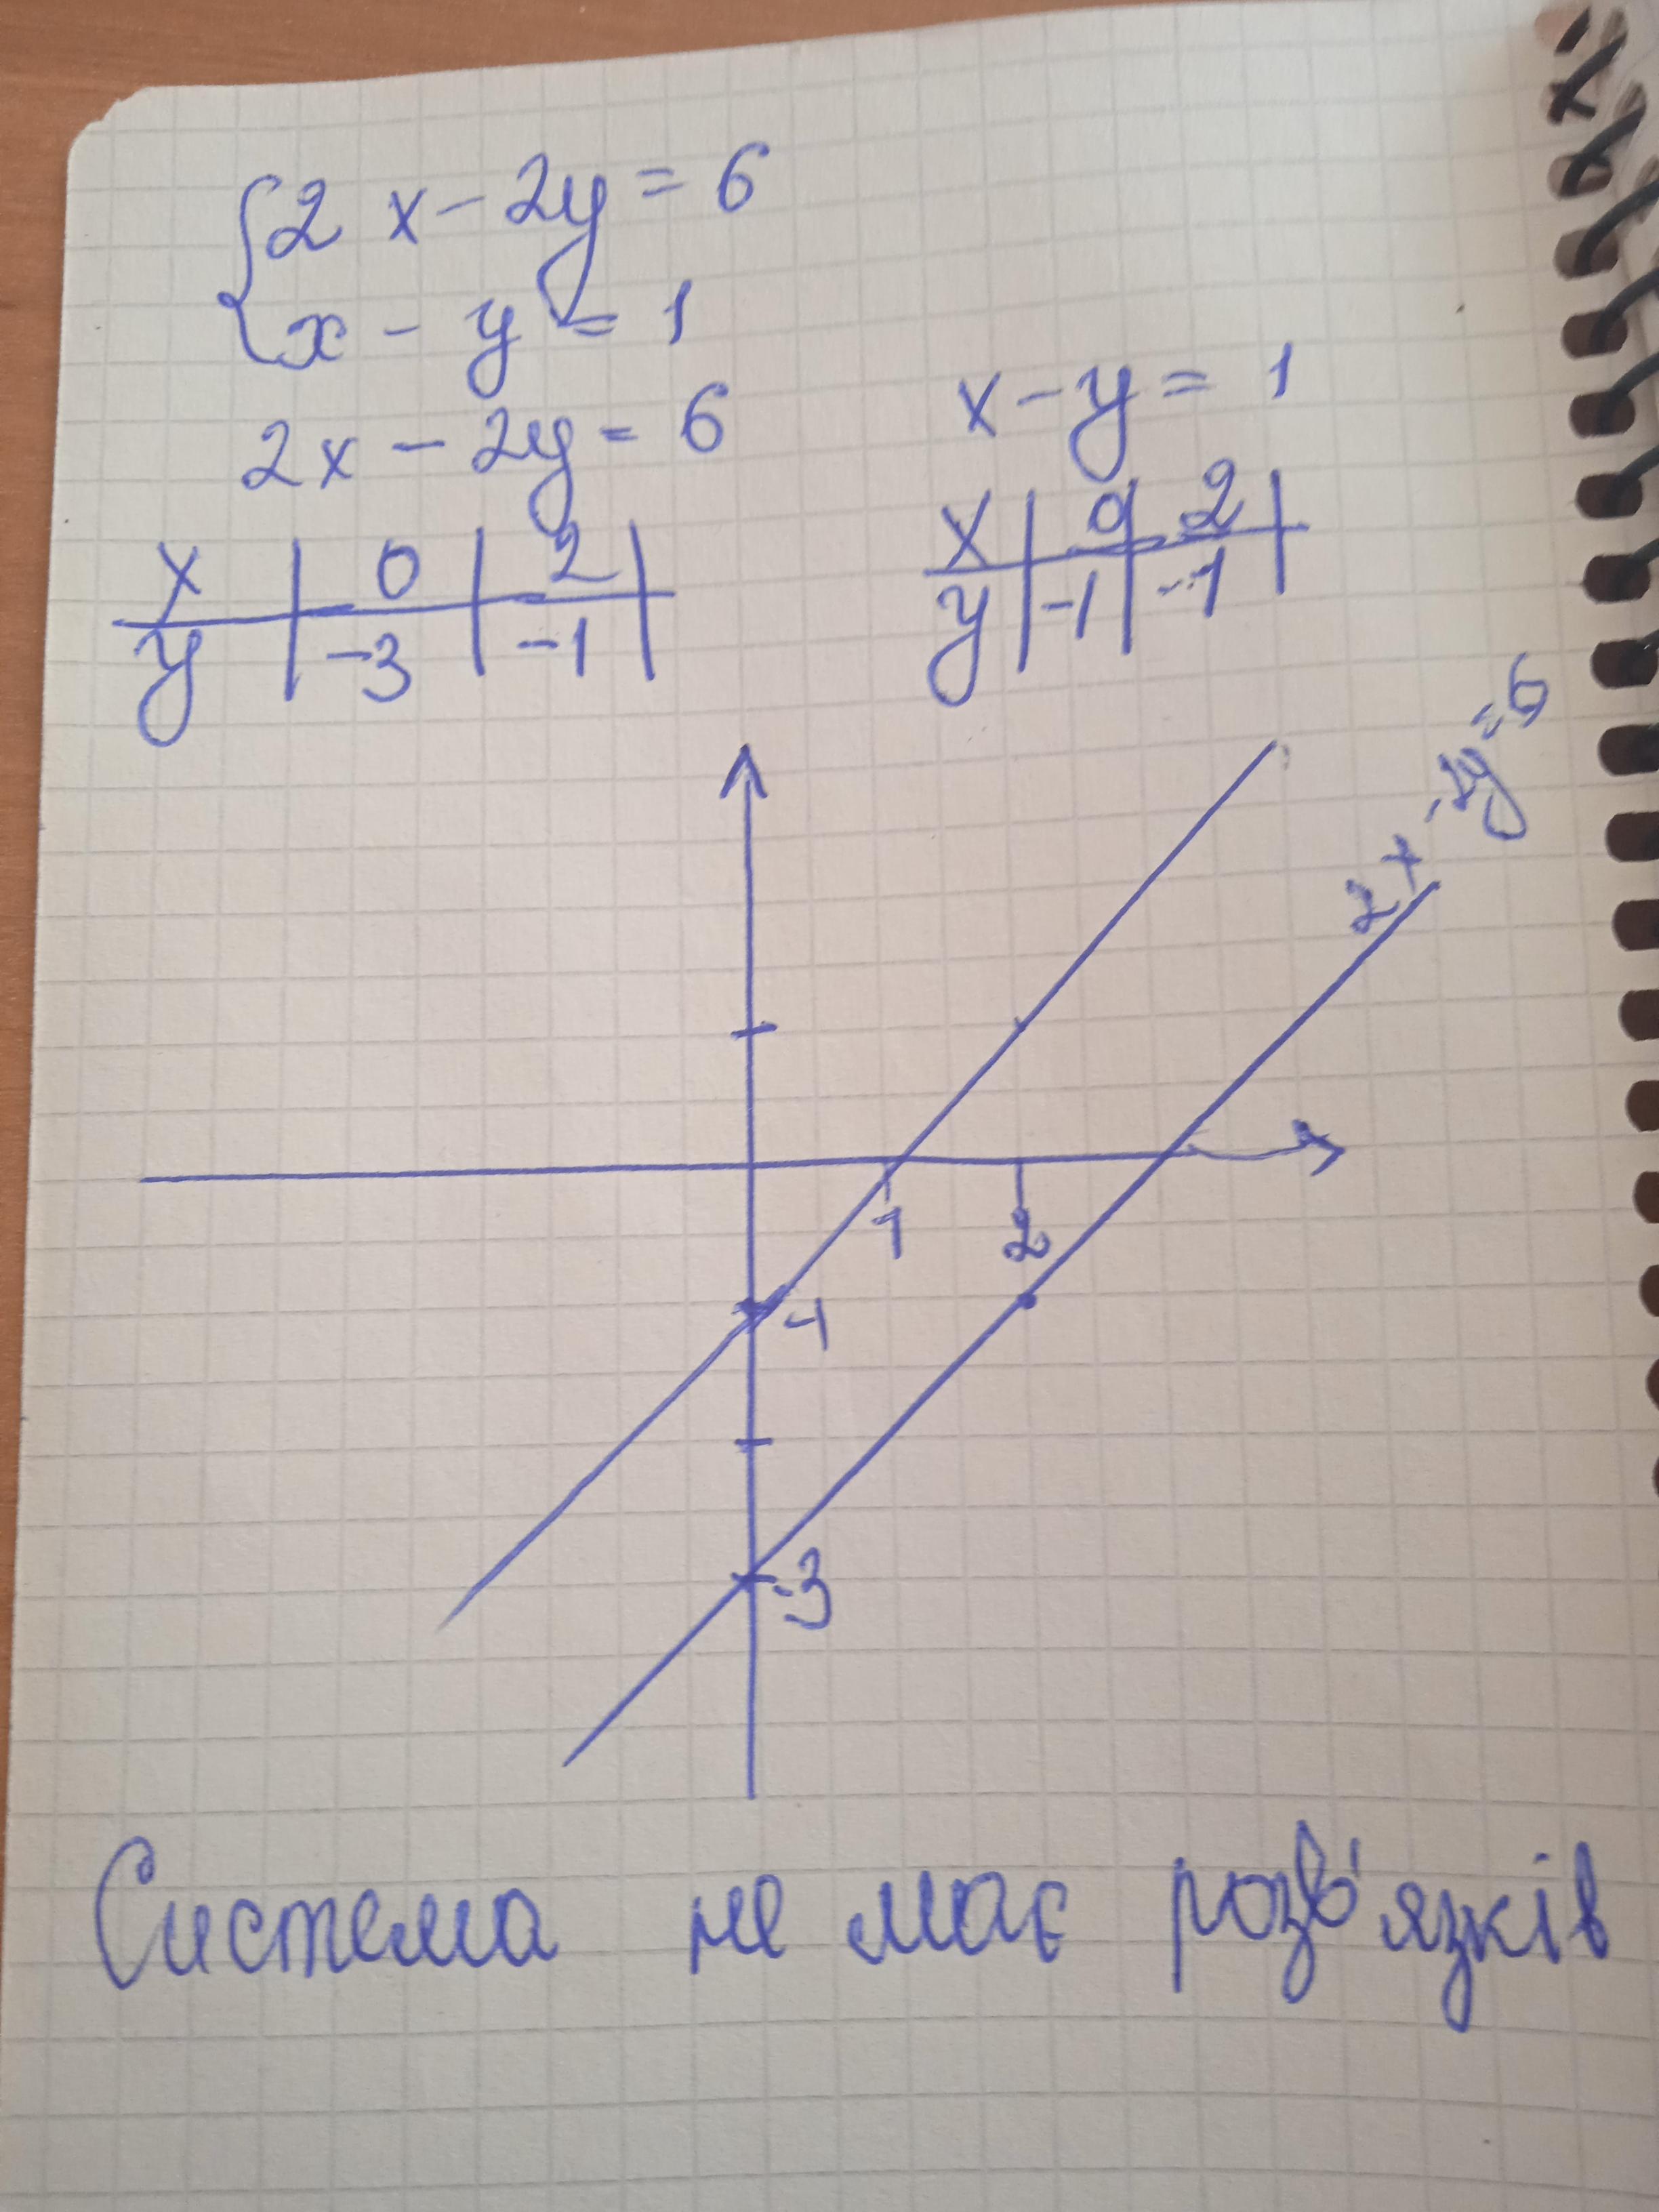 {2x - 2y = 6
x - y = 1
2x - 2y = 6
x | 0 | 2 |
y | -3 | -1 |
x - y = 1
x | 0 | 2 |
y | -1 | -1 |
2x - 2y = 6
1 2
-1
-3
Система не має розв'язків